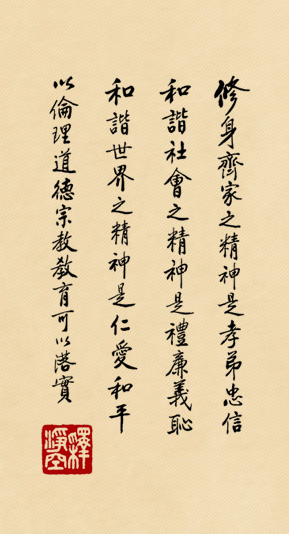 修身齊家之精神是孝弟忠信
和諧社會之精神是禮廉義恥
和諧世界之精神是仁愛和平
以倫理道德宗教教育可以落實
釋淨空